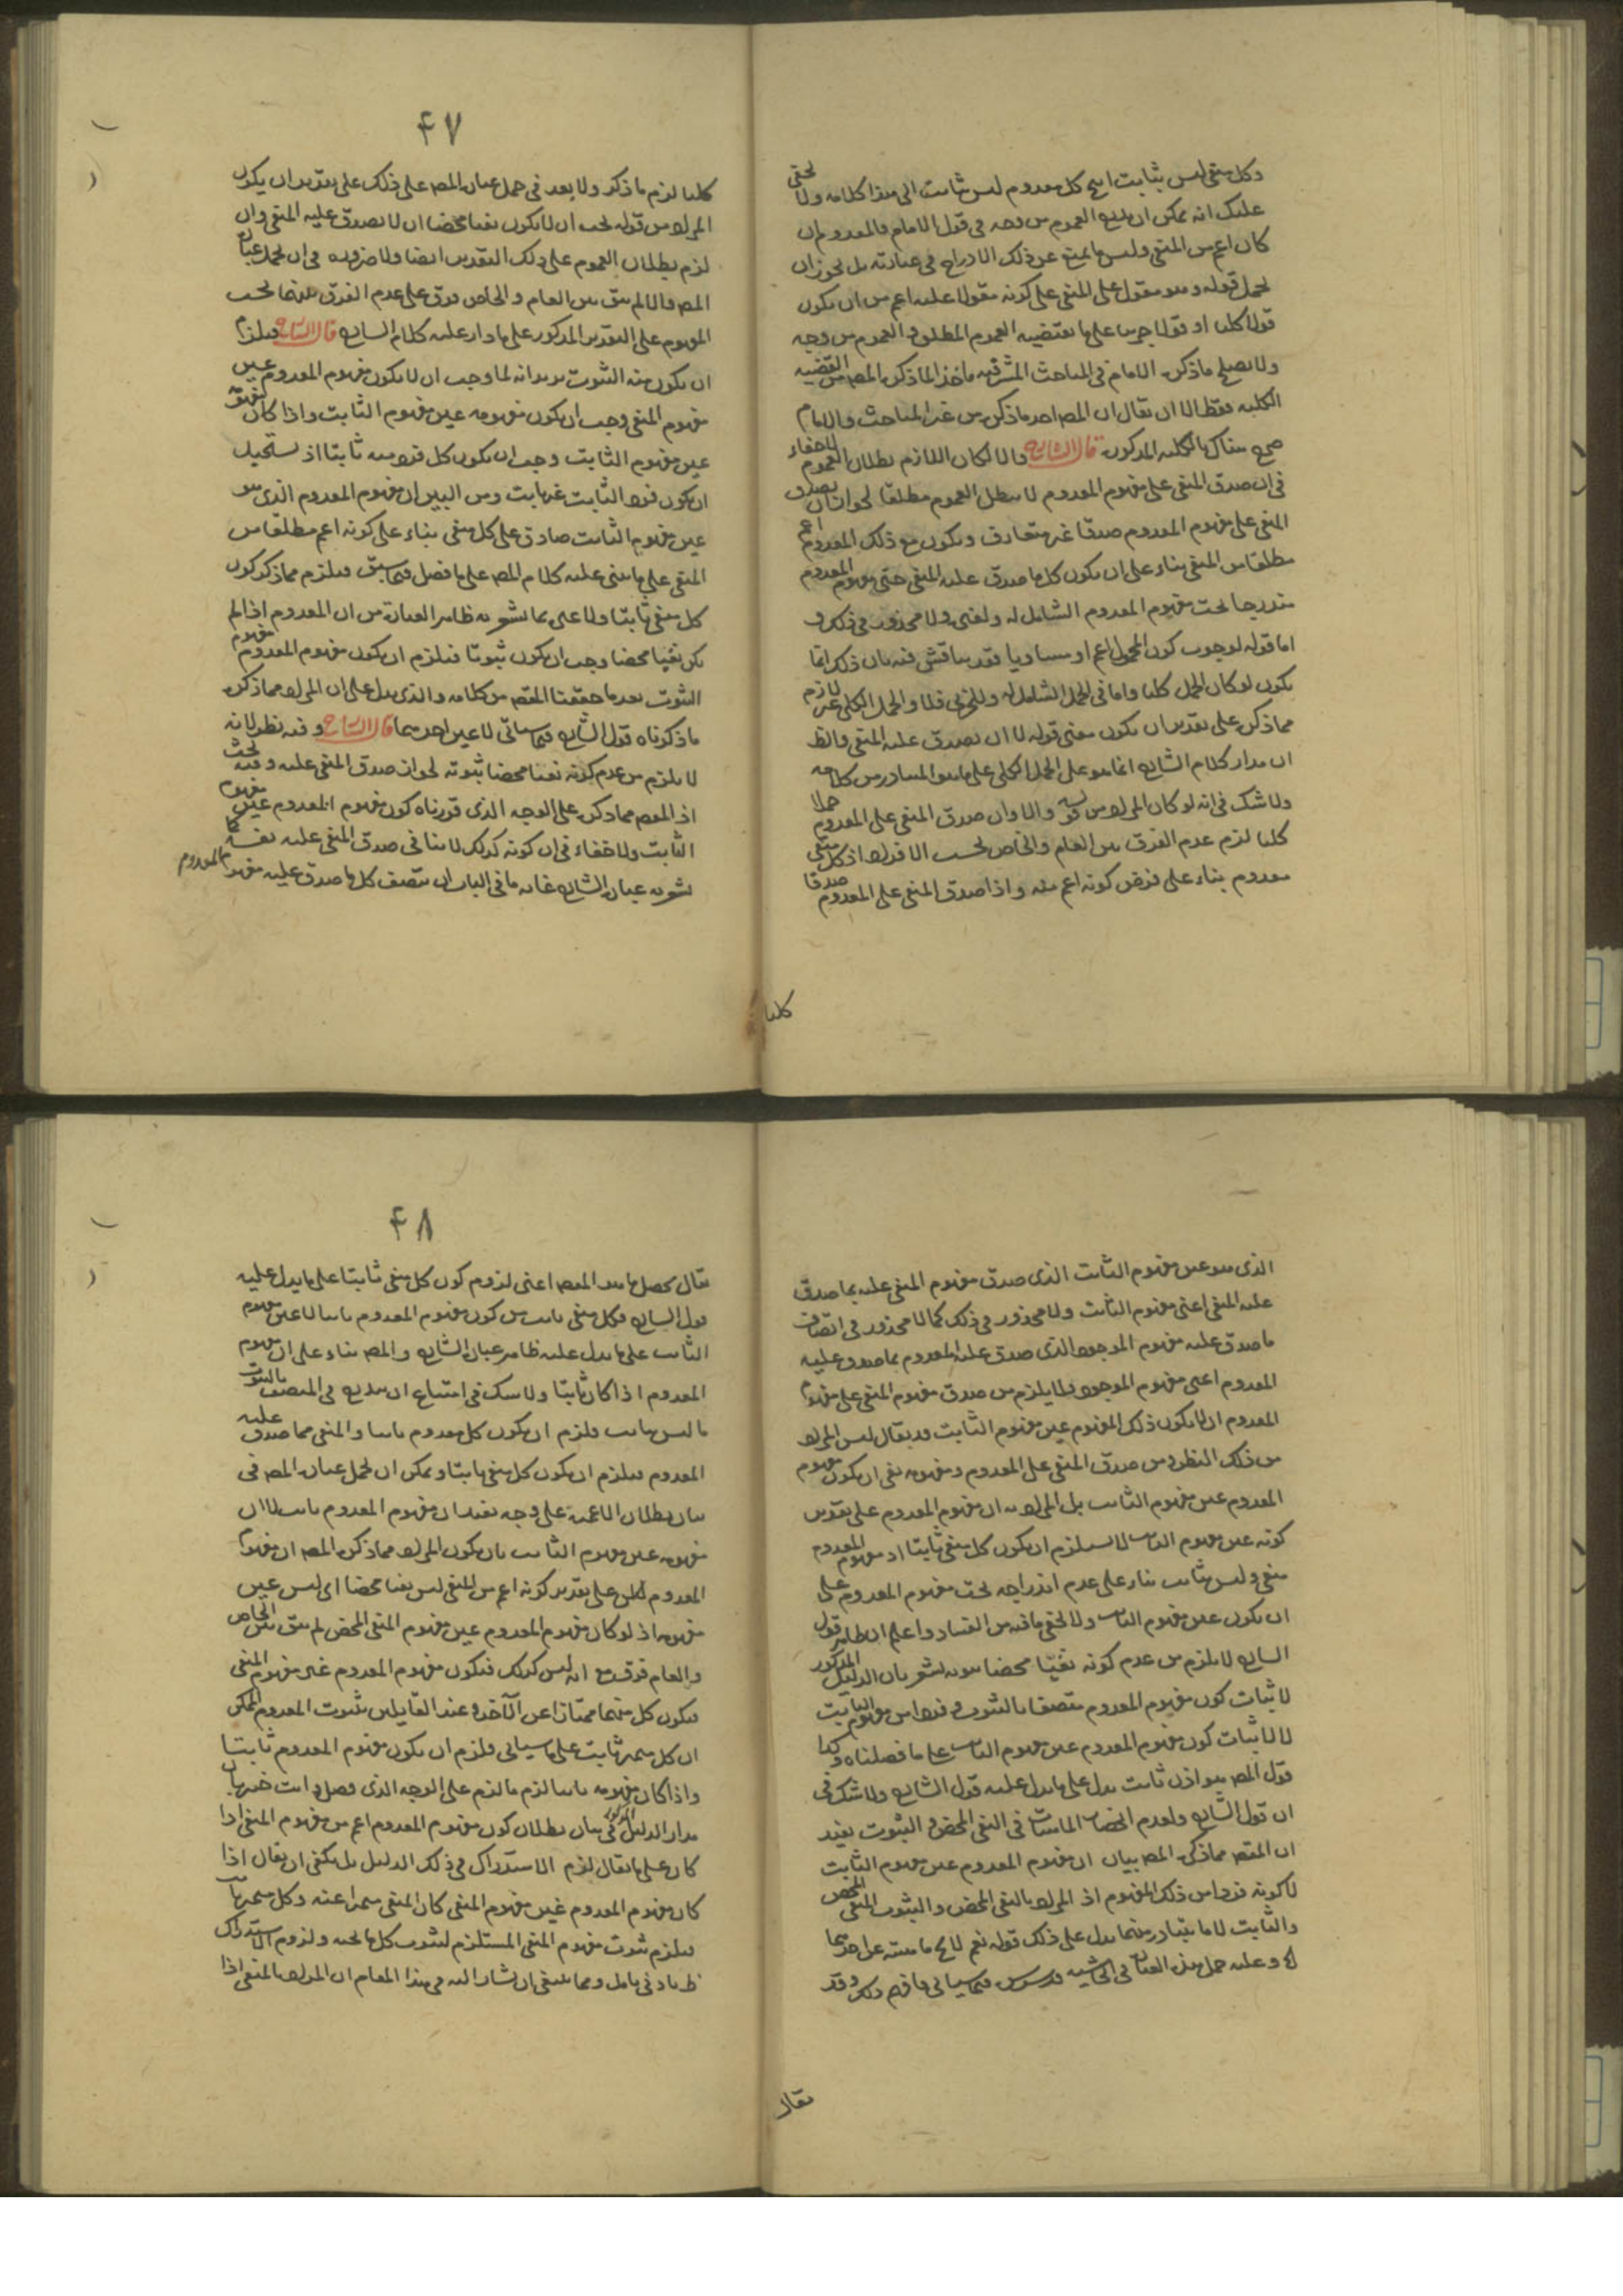 وكل منفى ليس بثابت انتج كل معدوم ليس بثابت الى هذا كلامه ولا يخفى
عليك انه يمكن ان العموم من وجه فى قول الامام فالمعدوم ان
كان اعم من المنفى وليس ما يمنع عن ذلك الادراج فى عبارته بل يجوز ان
يحمل قوله وهو مقول على المنفى على كونه مقولا عليه اعم من ان يكون
قولا كليا او قولا جزيا على ما يقتضيه العموم المطلق والعموم من وجه
ولا يصلح ما ذكره الامام فى المباحث المشرقيه ماخذا لما ذكره المص من القضيه
الكليه فقط الا ان يقال ان المص اخذ ما ذكره من غير المباحث والامام
صرح هناك بالكليه المذكوره قال الشارح والا لكان اللازم بطلان العموم لا خفاء
فى ان صدق المنفى على مفهوم المعدوم لا يبطل العموم مطلقا لجواز ان يصدق
المنفى على مفهوم المعدوم صدقا غير متعارف ويكون مع ذلك المعدوم اعم
مطلقا من المنفى بناء على ان يكون كل ما صدق عليه المنفى حتى مفهوم المعدوم
مندرجا تحت مفهوم المعدوم الشامل له ولغيره ولا محذور فى ذلك و
اما قوله لوجوب كون المحمول اعم او مساويا فقد يناقش فيه بان ذلك انما
يكون لو كان الحمل كليا واما فى الحمل الشامل له وللجزئى فلا والحمل الكلى غير لازم
مما ذكره على تقدير ان يكون معنى قوله لا ان يصدق عليه المنفى والظ
ان مدار كلام الشارح انما هو على الحمل الكلى على ما هو المتبادر من كلامه
ولا شك فى انه لو كان المراد من قوله والا وان صدق المنفى على المعدوم حملا
كليا لزم عدم الفرق بين العام والخاص بحسب الافراد اذ كل منفى
معدوم بناء على فرض كونه اعم منه واذا صدق المنفى على المعدوم صدقا
كليا
۴۷
كليا لزم ما ذكر ولا بعد فى حمل عبارة المص على ذلك على تقدير ان يكون
المراد من قوله يجب ان لا يكون نفيا محضا ان لا يصدق عليه المنفى وان
لزم بطلان العموم على ذلك التقدير ايضا ولا ضروره فى ان يحمل عبارة
المص والا لم يبق بين العام والخاص فرق على عدم الفرق بينهما بحسب
المفهوم على التقدير المذكور على ما دار عليه كلام الشارح قال الشارح فيلزم
ان يكون منه الثبوت يريد انه لما وجب ان لا يكون مفهوم المعدوم عين
مفهوم المنفى وجب ان يكون مفهومه عين مفهوم الثابت واذا كان مفهومه
عين مفهوم الثابت وجب ان يكون كل فرد منه ثابتا اذ يستحيل
ان يكون فرد الثابت غير ثابت ومن البين ان مفهوم المعدوم الذى هو
عين مفهوم الثابت صادق على كل منفى بناء على كونه اعم مطلقا من
المنفى على ما بنى عليه كلام المص على ما فصل فيما سبق فيلزم مما ذكر كون
كل منفى ثابتا ولا على بما يشعر به ظاهر العبارة من ان المعدوم اذا لم
يكن نفيا محضا وجب ان يكون ثبوتا فيلزم ان يكون مفهوم المعدوم مفهوم
الثبوت بعد ما حققنا المقصد من كلامه والذى يدل على ان المراد مما ذكره
ما ذكرناه قول الشارح فيما سيأتى لا عين احدهما قال الشارح وفيه نظر لانه
لا يلزم من عدم كونه نفيا محضا ثبوته لجواز صدق المنفى عليه وفيه بحث
اذ المقص مما ذكره على الوجه الذى قررناه كون مفهوم المعدوم عين مفهوم
الثابت ولا خفاء فى ان كونه كذلك لا ينافى صدق المنفى عليه نفسه كما
يشعر به عبارة الشارح غاية ما فى الباب ان يتصف كل ما صدق عليه مفهوم المعدوم
الذى هو عين مفهوم الثابت الذى صدق مفهوم المنفى عليه بما صدق
عليه المنفى اعنى مفهوم الثابت ولا محذور فى ذلك كما لا محذور فى اتصاف
ما صدق عليه مفهوم الموجود الذى صدق عليه المعدوم بما صدق عليه
المعدوم اعنى مفهوم الموجود ولا يلزم من صدق مفهوم المنفى على مفهوم
المعدوم ان لا يكون ذلك المفهوم عين مفهوم الثابت قد يقال ليس المراد
من ذلك النظر من صدق المنفى على المعدوم ومفهومه نفى ان يكون مفهوم
المعدوم عين مفهوم الثابت بل المراد به ان مفهوم المعدوم على تقدير
كونه عين مفهوم الثابت لا يستلزم ان يكون كل منفى ثابتا اذ مفهوم المعدوم
منفى وليس بثابت بناء على عدم اندراجه تحت مفهوم المعدوم على
ان يكون عين مفهوم الثابت ولا يخفى ما فيه من الفساد واعلم ان ظاهر قول
الشارح لا يلزم من عدم كونه نفيا محضا ثبوته يشعر بان الدليل المذكور
لاثبات كون مفهوم المعدوم متصفا بالثبوت وفردا من مفهوم الثابت
لا لاثبات كون مفهوم المعدوم عين مفهوم الثابت على ما فصلناه وكذا
قول المص هو اذن ثابت يدل على ما يدل عليه قول الشارح ولا شك فى
ان قول الشارح ولعدم انحصار الماهيات فى النفى المحض والثبوت يفيد
ان المقص مما ذكره المص بيان ان مفهوم المعدوم عين مفهوم الثابت
لا كونه فردا من ذلك المفهوم اذ المراد بالنفى المحض والثبوت المنفى المحض
والثابت لا ما يتبادر منهما يدل على ذلك قوله نعم لا ماهيته عن احدهما
وعليه حمل هذه العبارة فى الحاشيه فيما سيأتى فافهم ذلك وقد
يقال
۴۸
يقال يحصل ما هو المقص اعنى لزوم كون كل منفى ثابتا على ما يدل عليه
قول الشارح فكل منفى ثابت من كون مفهوم المعدوم ثابتا لا عين مفهوم
الثابت على ما يدل عليه ظاهر عبارة الشارح والمص بناء على ان مفهوم
المعدوم اذا كان ثابتا ولا شك فى امتناع ان يندرج فى المتصف بالثبوت
ما ليس بثابت فلزم ان يكون كل معدوم ثابتا والمنفى مما صدق عليه
المعدوم فيلزم ان يكون كل منفى ثابتا ويمكن ان يحمل عبارة المص فى
بيان بطلان الاعميه على وجه يفيد ان مفهوم المعدوم ثابت لا ان
مفهومه عين مفهوم الثابت بان يكون المراد مما ذكره المص ان مفهوم
المعدوم على تقدير كونه اعم من المنفى ليس نفيا محضا اى ليس عين
مفهومه اذ لو كان مفهوم المعدوم عين مفهوم المنفى المحض لم يبق بين الخاص
والعام فرق مع انه ليس كذلك فيكون مفهوم المعدوم غير مفهوم المنفى
فيكون كل منهما ممتازا عن الآخر وعند القايلين بثبوت المعدوم الممكن
ان كل متميز ثابت على ما سيأتى فلزم ان يكون مفهوم المعدوم ثابتا
واذا كان مفهومه ثابتا لزم ما لزم على الوجه الذى فصل وانت خبير بان
مدار الدليل المذكور فى بيان بطلان كون مفهوم المعدوم اعم من مفهوم المنفى اذا
كان على ما يقال لزم الاستدراك فى ذلك الدليل بل يكفى ان يقال اذا
كان مفهوم المعدوم غير مفهوم المنفى كان المنفى متميزا عنه وكل متميز ثابت
فيلزم ثبوت مفهوم المنفى المستلزم لثبوت كل ما تحته ولزوم الاستدراك
ظ بادنى تامل ومما ينبغى ان يشار اليه فى هذا المقام ان المراد بالمنفى اذا